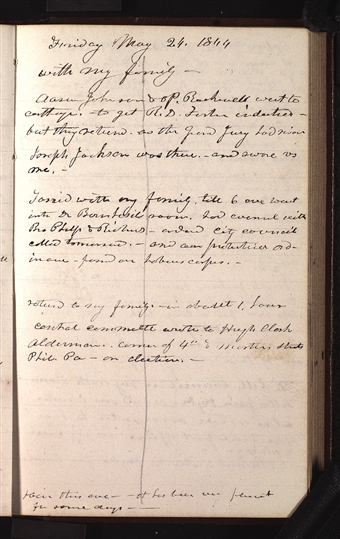 Friday May 24. 1844
with my family —
Aaron Johnson & O P. Rockwell went to
carthage. to get R. D. Foster indicted —
but they returned. as the grand Jury had risen
Joseph Jackson was there. — and swore vs
me. —
Tarried with my family till 6 eve went
into Dr Bernhisels room. had council with
Bro Phelps & Richards — ordered City council
called tomorrow. — and an
— on habeas corpus. —
return to my family — in about 1. hour
central committee wrote to Hugh Clark
Alderman. corner of 4th & Streets
Phila Pa — on election. —
rain this eve — it has been
for some days —